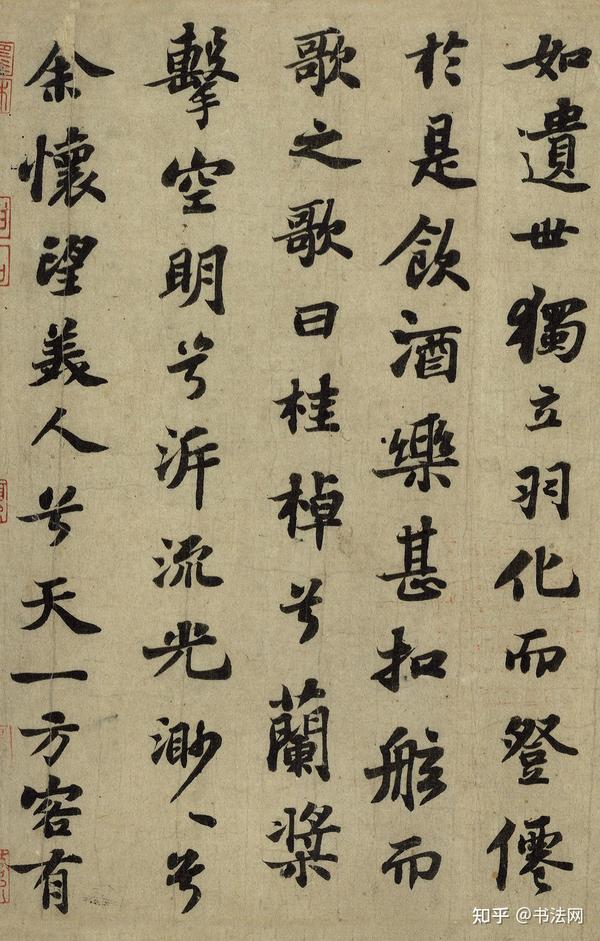 如遺世獨立羽化而登僊
於是飲酒樂甚扣舷而
歌之歌曰桂棹兮蘭槳
擊空明兮泝流光渺〻兮
余懷望美人兮天一方客有
知乎 @书法网